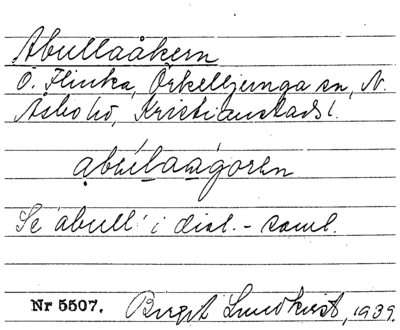 Abullaåkern
Ö. Flinka, Örkelljunga sn, N.
Åsbo hd, Kristianstads l.
abúlaàgoren
Se abull i dial. - saml.
Nr 5507. Birgit Lundkvist, 1939.